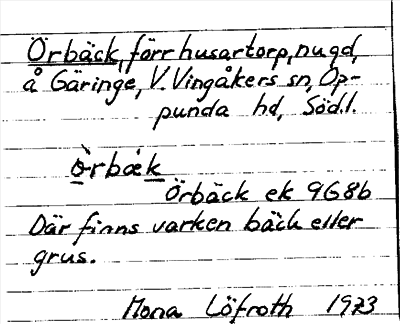 Örbäck, förr husartorp, nu gd,
å Gäringe, V. Vingåkers sn, Op-
punda hd, Södl.
ò̱rbæḵ
Örbäck ek 9G8b
Där finns varken bäck eller
grus.
Mona Löfroth 1973